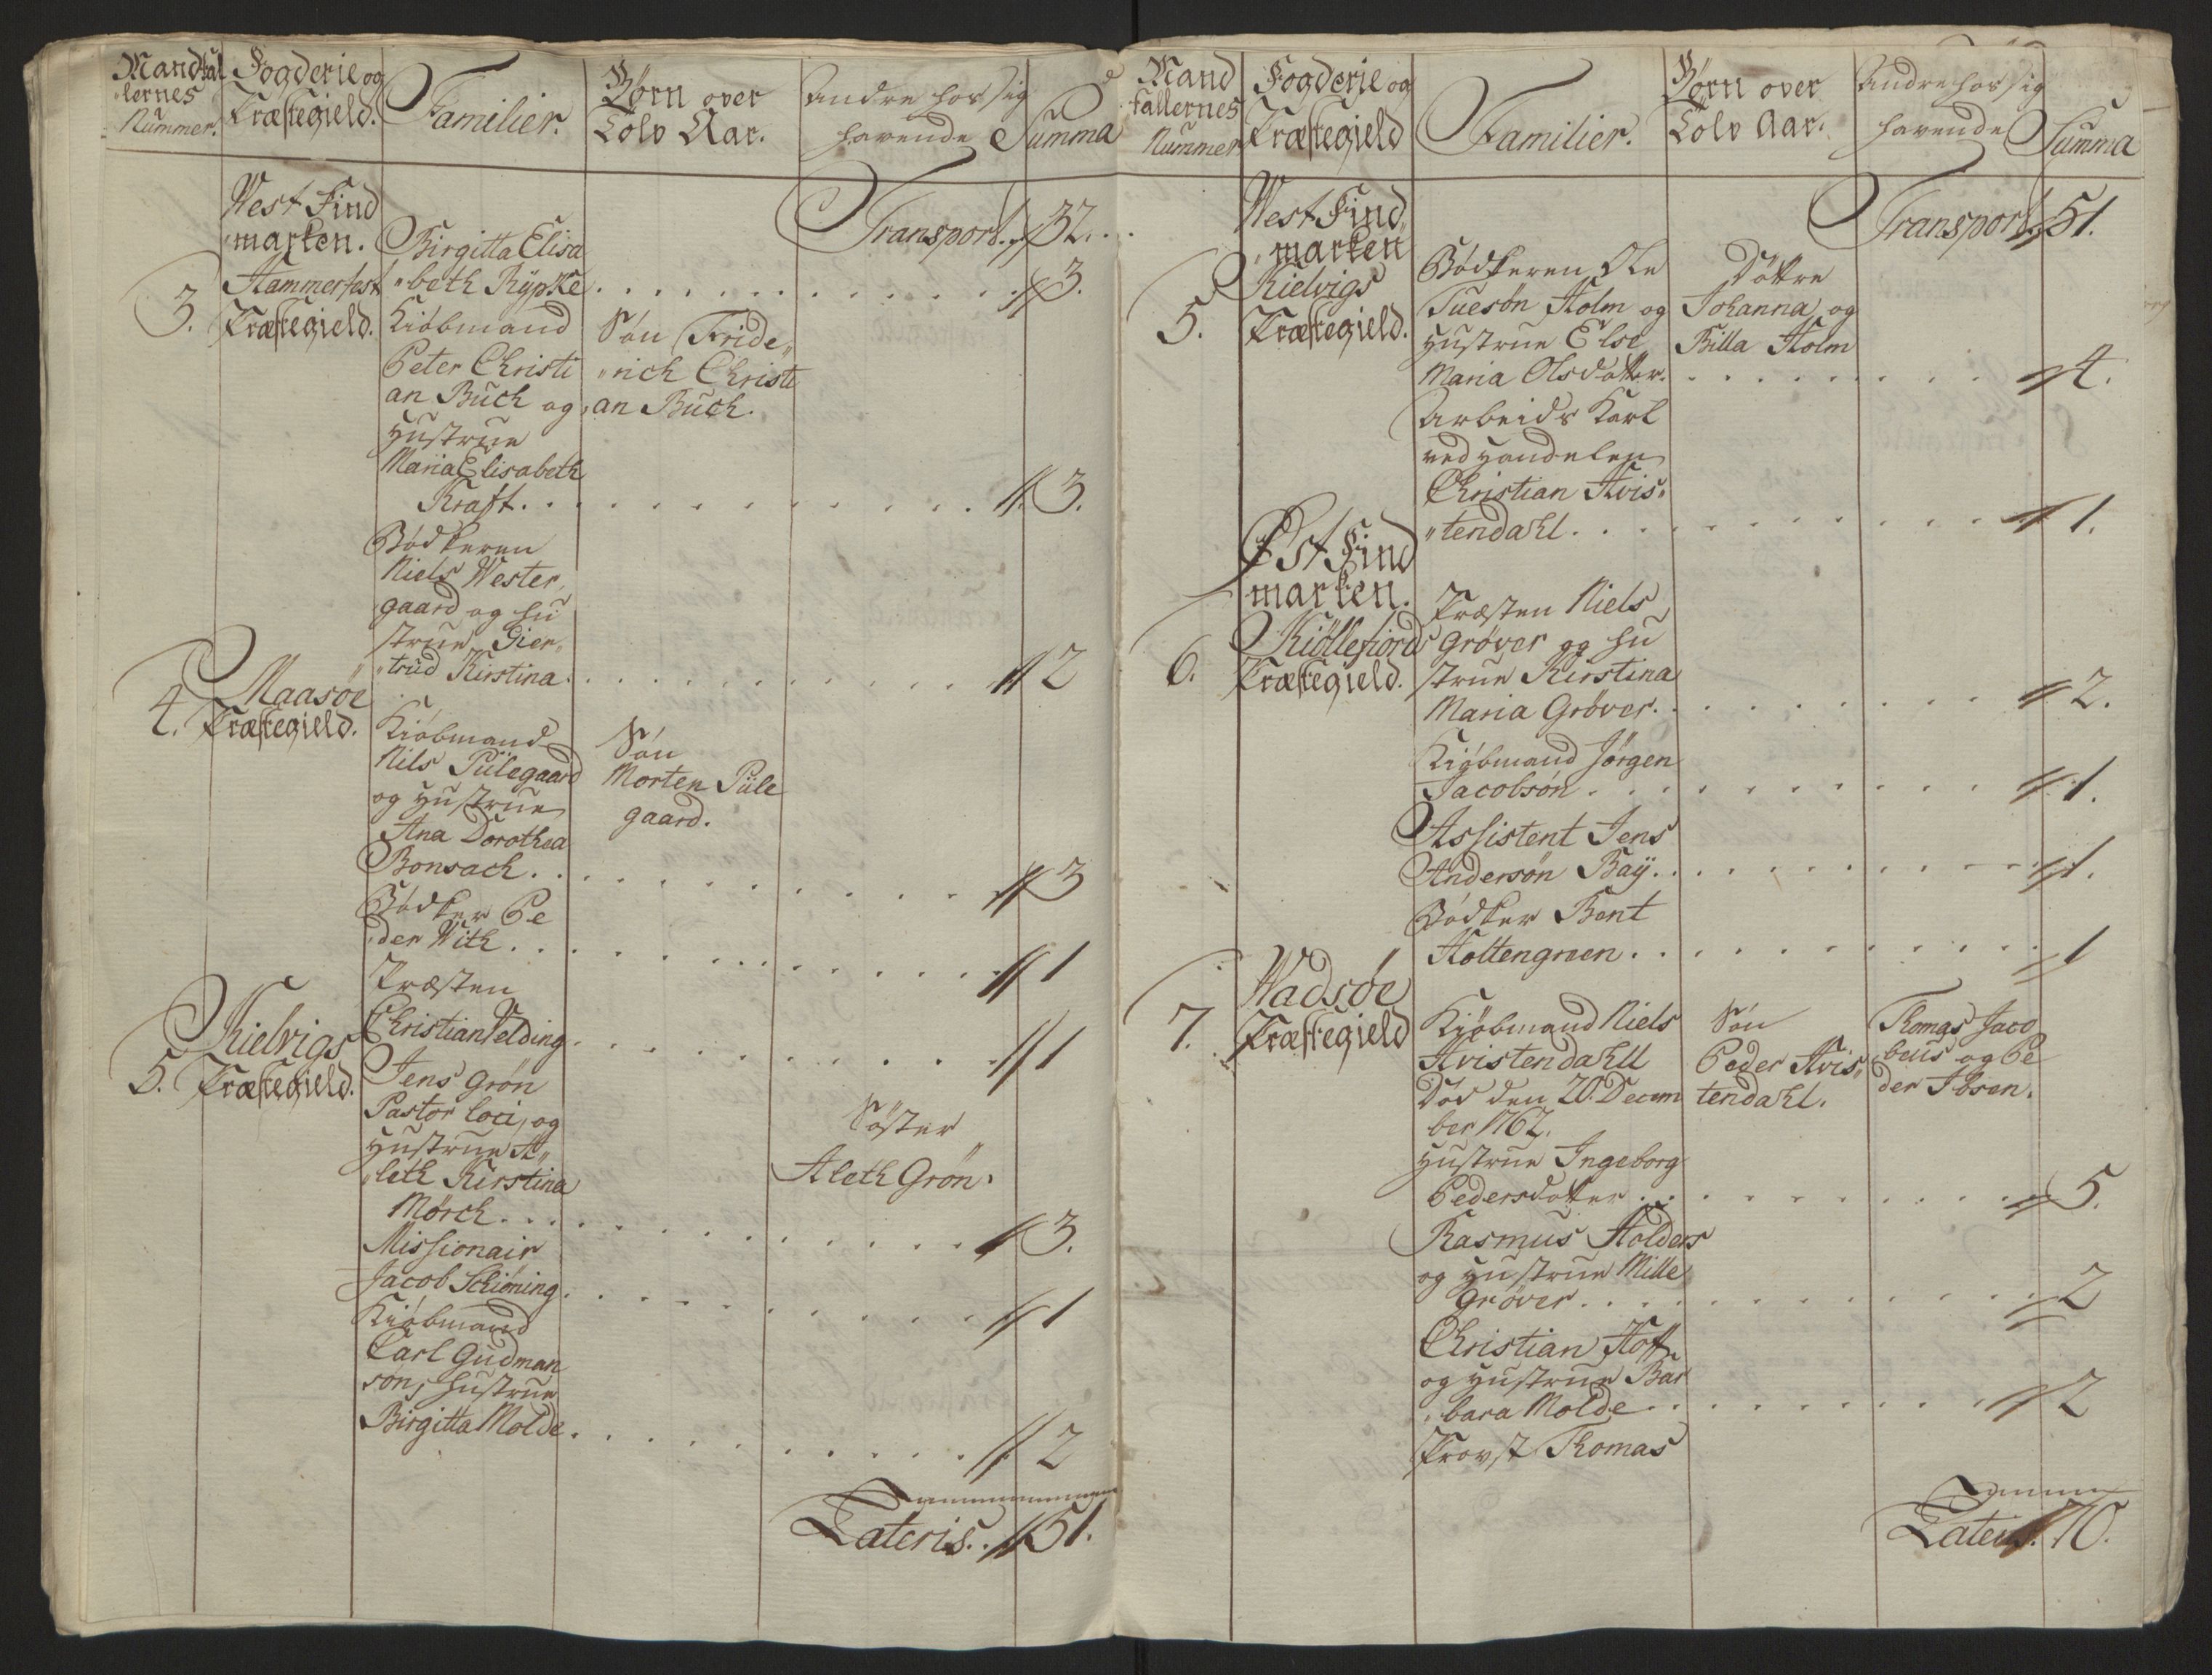 Mandtal
lernes
Nummer.
Fogderie og
Præstegield.
Familier.
Børn over
Tolv Aar.
Andre hos sig
havende
Summa
West Find
marken.
Transport. 32.
3.
Hammerfest
Præstegield.
Birgitta Elisa
beth Rypke . . . 3.
Kiøbmand
Peter Christi
an Buch og
Hustrue
Maria Elisabeth
Kraft . . . 3.
Søn Fride
rich Christi
an Buch.
Bødkeren
Niels Wester
gaard og Hu
strue Gier
trud Kirstina . . . 2
4.
Maasøe
Præstegield.
Kiøbmand
Nils Pülegaard
og Hustrue
Ana Dorothea
Bonsach . . . 3
Søn
Morten Püle
gaard.
Bødker Pe
der With . . . 1
5.
Kielvigs
Præstegield.
Præsten
Christian Felding . . . 1
Jens Grøn
Pastor loci, og
Hustrue A
leth Kirstina
Mørch . . . 3.
Søster
Aleth Grøn.
Missionair
Jacob Schiøning . . . 1
Kiøbmand
Carl Gudman
søn, Hustrue
Birgitta Molde . . . 2
Lateris. 51.
Mand
tallernes
Nummer
Fogderie og
Præstegield
Familier.
Børn over
Tolv Aar.
Andre hos sig
havende
Summa
West Find
marken
Transport 51.
5.
Kielvigs
Præstegield.
Bødkeren Ole
Tuesøn Holm og
Hustrue Else
Maria Olsdatter . . . 4.
Døttre
Johanna og
Billa Holm
Arbeids Karl
ved Handelen
Christian Hvis
tendahl . . . 1.
Øst Find
marken.
6.
Kiöllefiords
Præstegield.
Præsten Niels
Grøver og Hu
strue Kirstina
Maria Grøver . . . 2.
Kiøbmand Jørgen
Jacobsøn . . . 1.
Assistent Jens
Andersøn Baÿ . . . 1.
Bødker Bent
Hottengreen . . . 1
7.
Wadsøe
Præstegield
Kiøbmand Niels
Hvistendahll
Død den 20. Decem
ber 1762.
Hustrue Ingeborg
Pedersdatter . . . 5.
Søn
Peder Hvis
tendahl.
Thomas Jaco
beus og Pe
der Ibsen.
Rasmus Holders
og Hustrue Mille
Grøver . . . 2
Christian Hoff
og Hustrue Bar
bara Molde . . . 2
Provst Thomas
Lateris. 70.